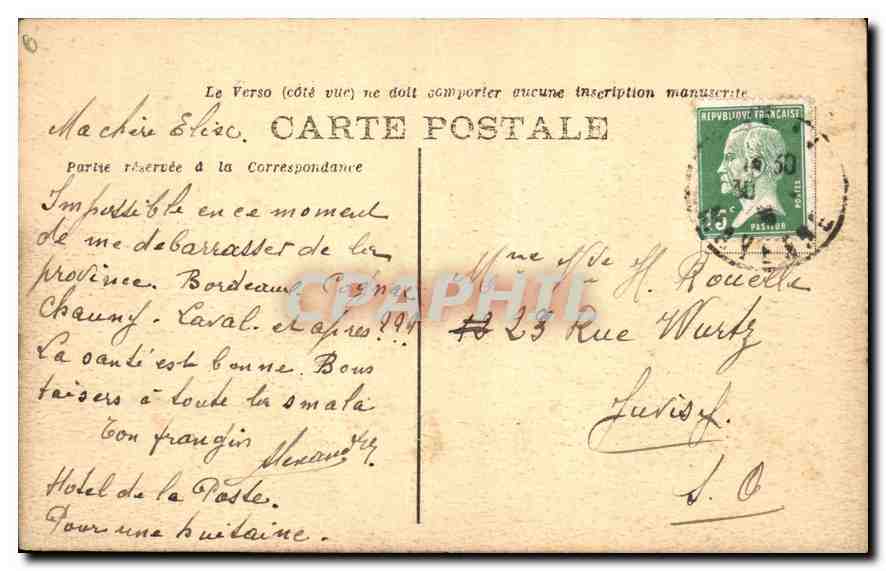 Le Verso (côté vue) ne doit comporter aucune inscription manuscrite
Ma chère Elise.
CARTE POSTALE
Partie réservée à la Correspondance
Impossible en ce moment
de me debarrasser de la
province. Bordeaux Cognac
Chauny. Laval. et apres???
La santé est bonne. Bons
baisers à toute la smala
Ton frangin
Alexandre
Hotel de la Poste.
Pour une huitaine.
REPUBLIQUE FRANÇAISE
POSTES
15c
PASTEUR
30
MAYENNE
Mme Vve H. Rouelle
23 Rue Wurtz
Juvisy.
S. O
CPAPHIL